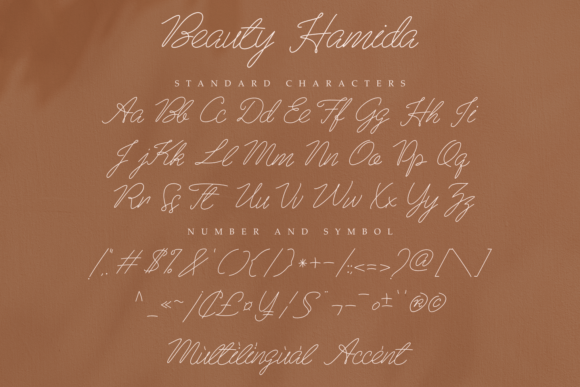 Beauty Hamida
STANDARD CHARACTERS
Aa Bb Cc Dd Ee Ff Gg Hh Ii
J jKk Ll Mm Nn Oo Pp Qq
Rr Ss Tt Uu Vv Ww Xx Yy Zz
NUMBER AND SYMBOL
!",.#$%&'(){|}*+-/:;<=>?@[\]
^_«~¦¢£¤¥|§¨¬-¯°±´`®©
Multilingual Accent